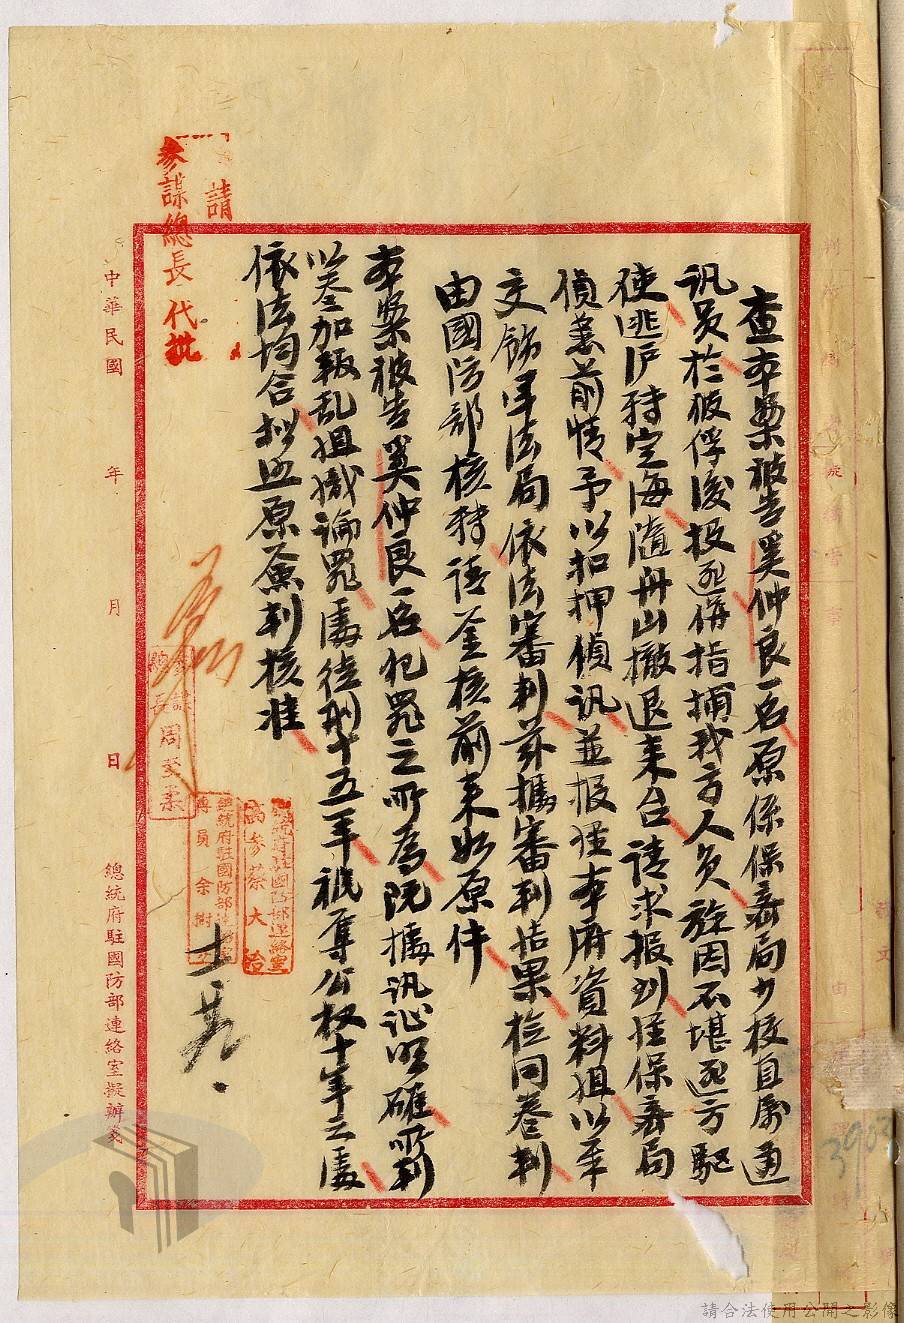 查本案被告奚仲良一名原係保密局少校直屬通
訊員於被俘後投匪偕指捕我方人員旋因不堪匪方駛
使逃滬轉定海隨舟山撤退来台請求报到經保密局
偵悉前情予以扣押偵訊並报經本府資料組以奉
交飭军法局依法審判茲據審判结果檢同卷判
由國防部核轉請鉴核前来如原件
本案被告奚仲良一名犯罪之所為既據訊证明確所判
以叁加叛乱组織論罪處徒刑十五年褫奪公权十年之處
依法均合拟照原簽判核准
請
參謀總長 代批
參謀總長 周至柔
總統府駐國防部連絡室
高參 蔡大治
總統府駐國防部連絡室
專員 余樹
中華民國 年 月 日
總統府駐國防部連絡室擬辦箋
3903
請合法使用公開之影像